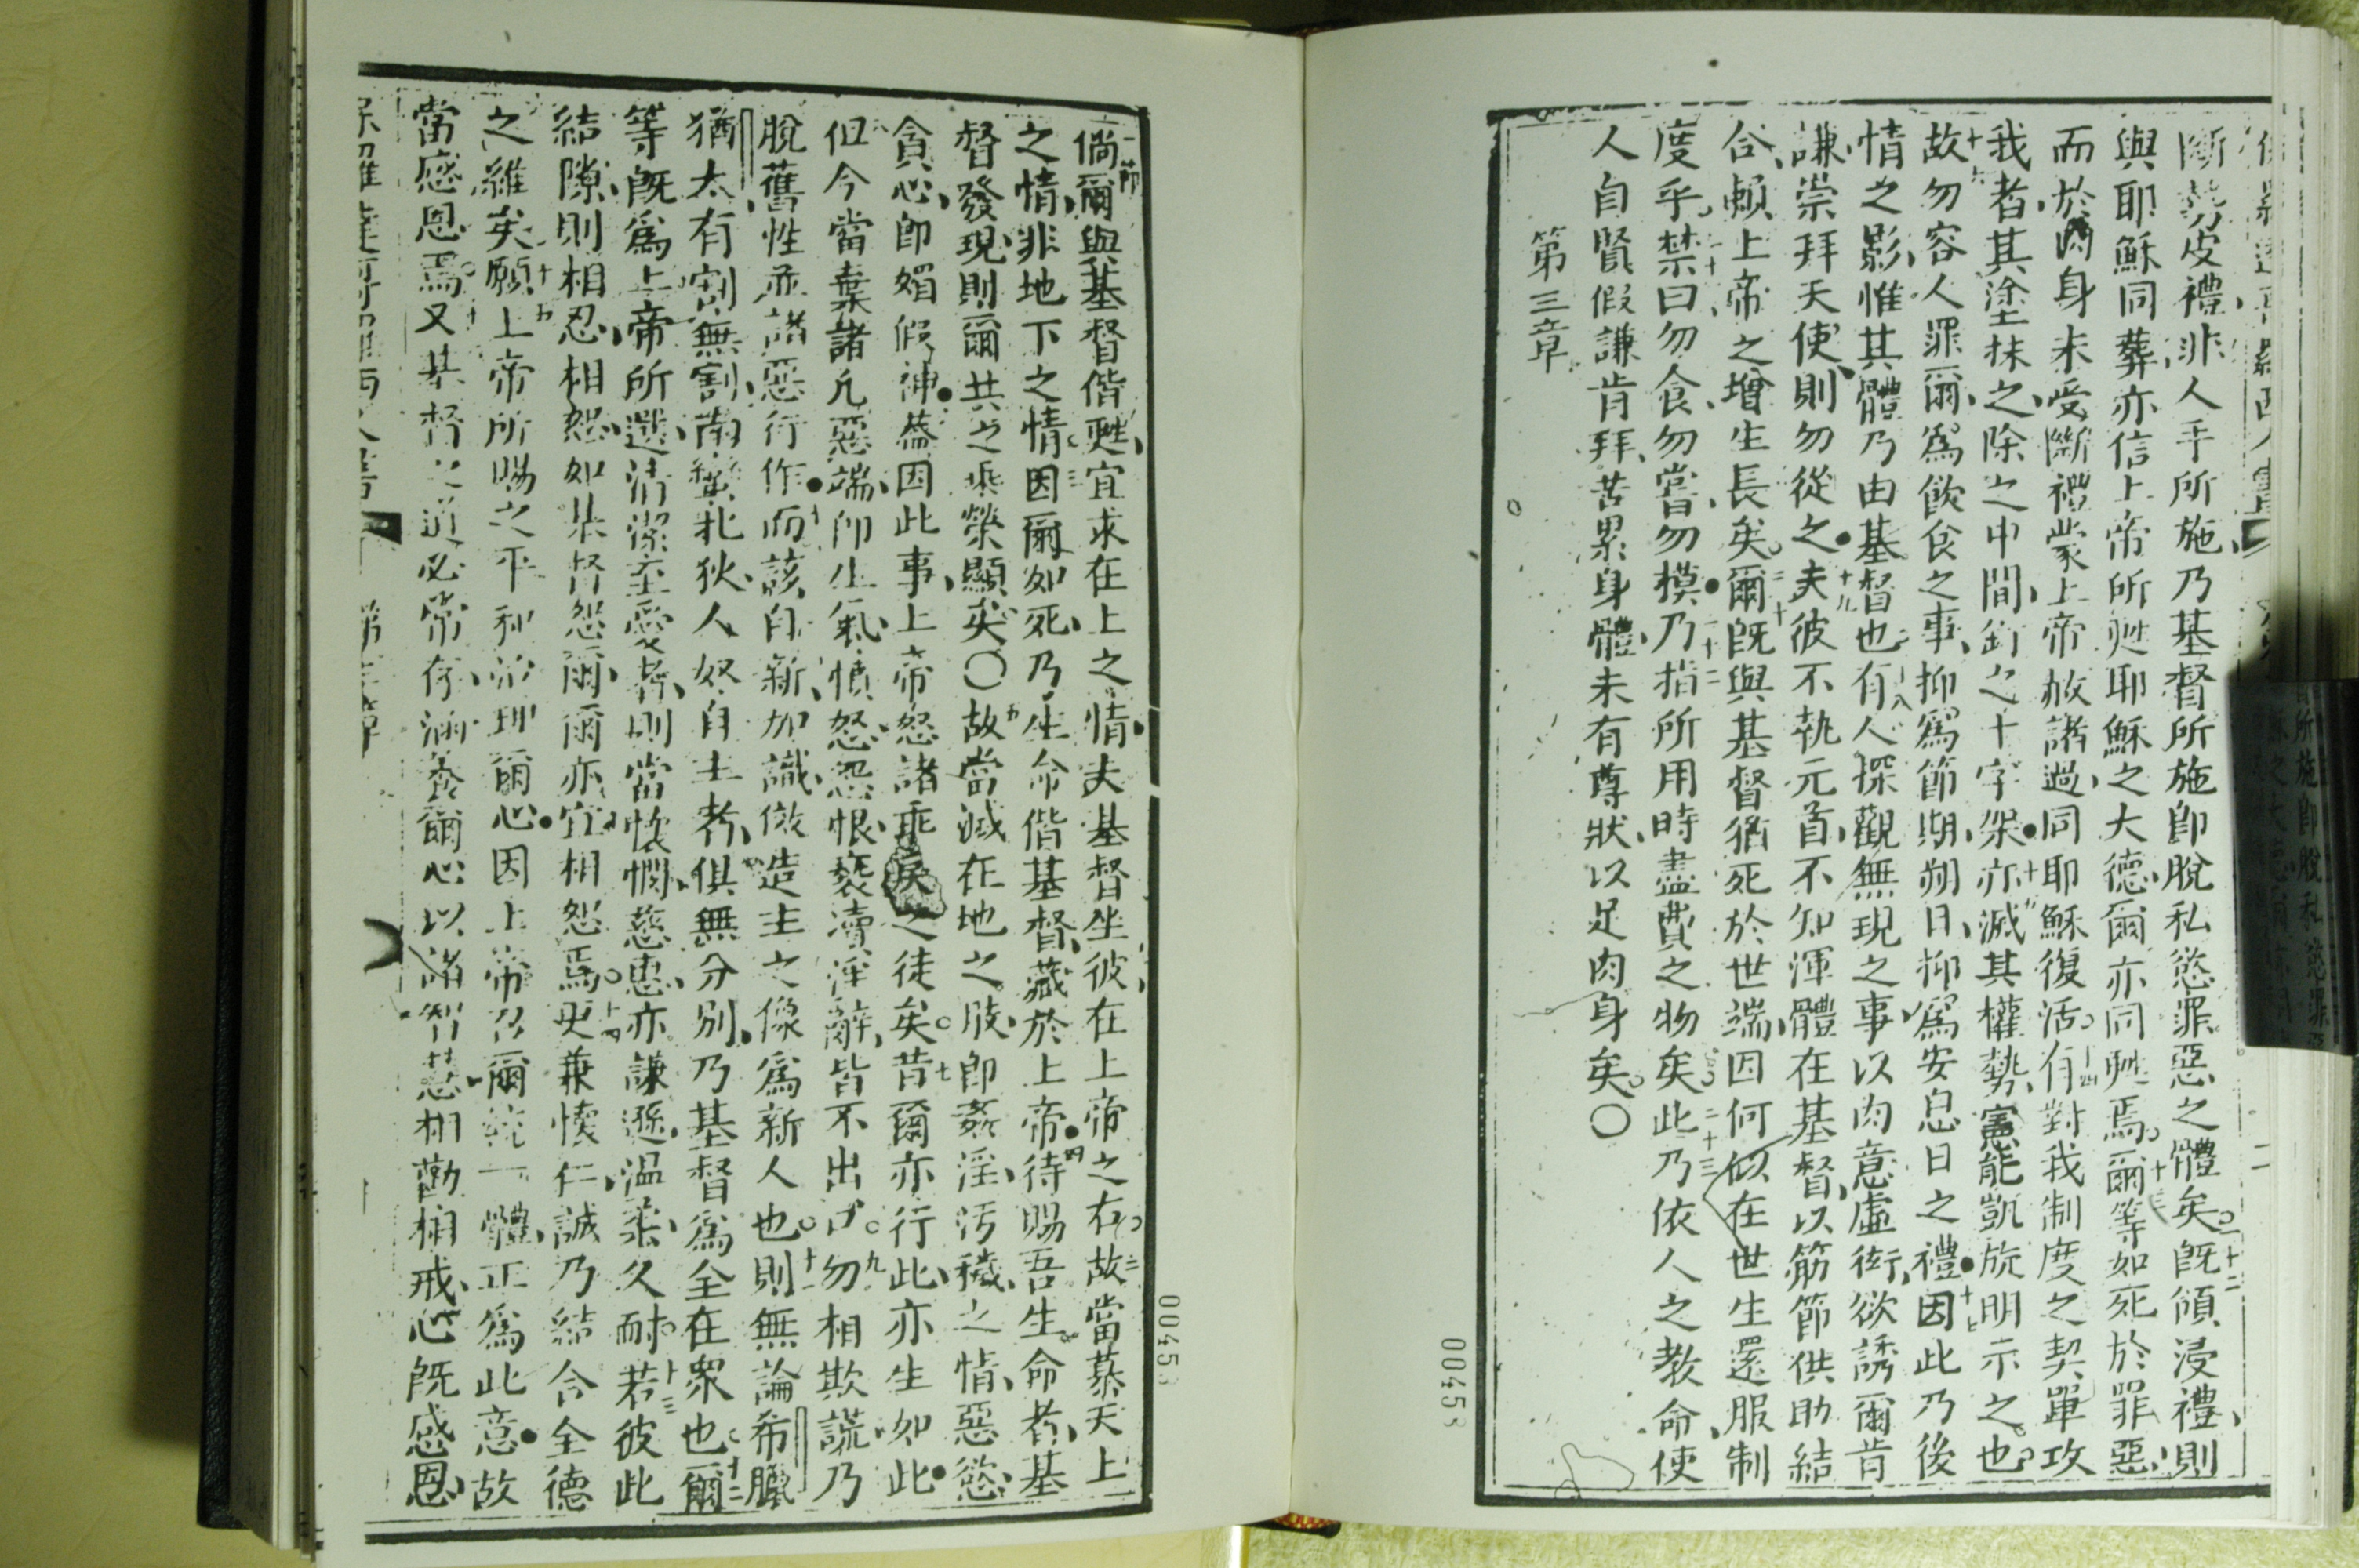 斷勢皮禮非人手所施乃基督所施卽脫私慾罪惡之體矣十二旣領浸禮則
與耶穌同葬亦信上帝所甦耶穌之大德爾亦同甦焉十三爾等如死於罪惡
而於肉身未受斷禮蒙上帝赦諸過同耶穌復活十四有對我制度之契單攻
我者其塗抹之除之中間釘之十字架十五亦滅其權勢憲能凱旋明示之也
十六故勿容人罪爾爲飮食之事抑爲節期朔日抑爲安息日之禮十七因此乃後
情之影惟其體乃由基督也十八有人探觀無現之事以肉意虛衒欲誘爾肯
謙崇拜天使則勿從之十九夫彼不執元首不知渾體在基督以筋節供助結
合賴上帝之增生長矣二十爾旣與基督猶死於世端因何似在世生還服制
度乎二十一禁曰勿食勿嘗勿模二十二乃指所用時盡費之物矣二十三此乃依人之敎命使
人自賢假謙肯拜苦累身體未有尊狀以足肉身矣〇
第三章
00453
一節倘爾與基督偕甦宜求在上之情夫基督坐彼在上帝之右二故當慕天上
之情非地下之情三因爾如死乃生命偕基督藏於上帝四待賜吾生命者基
督發現則爾共之乘榮顯矣〇五故當滅在地之肢卽姦淫汚穢之情惡慾
貪心卽媚假神六蓋因此事上帝怒諸乖戾之徒矣七昔爾亦行此亦生如此
八但今當棄諸凡惡端卽生氣憤怒怨恨褻瀆淫辭皆不出口九勿相欺謊乃
脫舊性並諸惡行作十而該自新加識倣造主之像爲新人也十一則無論希臘
猶太有割無割南蠻北狄人奴自主者俱無分別乃基督爲全在衆也十二爾
等旣爲上帝所選淸潔至愛者則當懷憫慈惠亦謙遜溫柔久耐十三若彼此
結隙則相忍相恕如基督恕爾爾亦宜相恕焉十四更兼懷仁誠乃結合全德
之維矣十五願上帝所賜之平和治理爾心因上帝召爾統一體正爲此意故
當感恩焉十六又基督之道必常存涵養爾心以諸智慧相勸相戒心旣感恩
00453